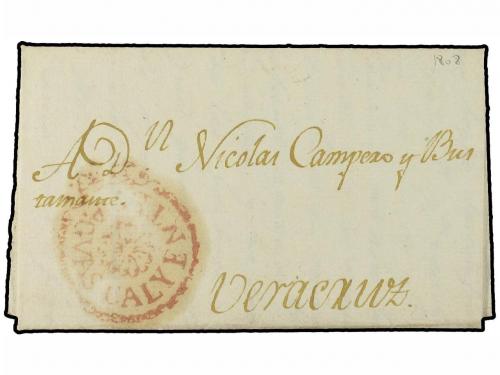 1808
A Dn Nicolas Campero y Bus
tamante.
Veracruz.